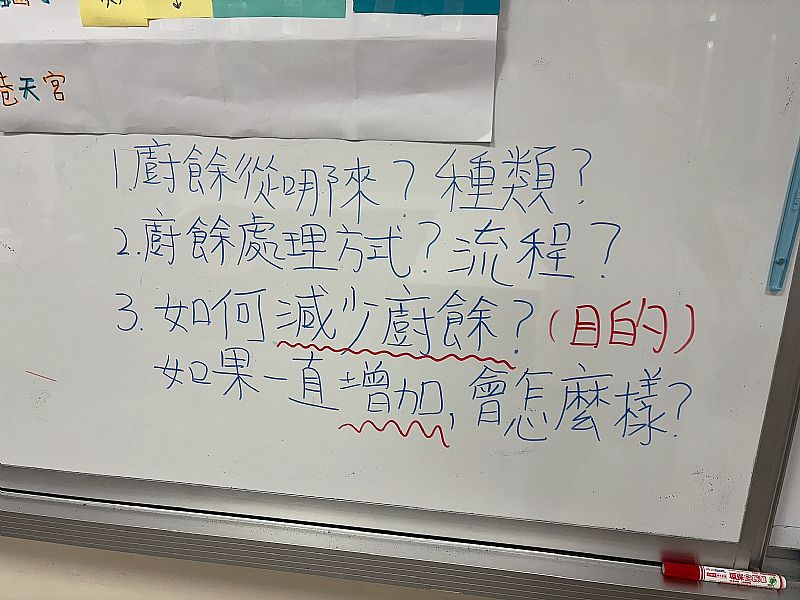 天宮
1.廚餘從哪來？種類？
2.廚餘處理方式？流程？
3.如何減少廚餘？(目的)
如果一直增加,會怎麼樣？